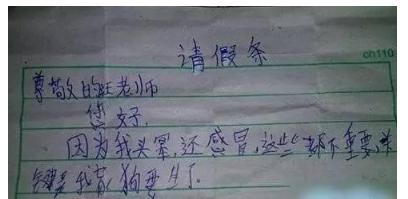 请假条
ch110
尊敬的班老师
您好,
因为我头晕,还感冒,这些都不重要,关
键是我家狗要生了.